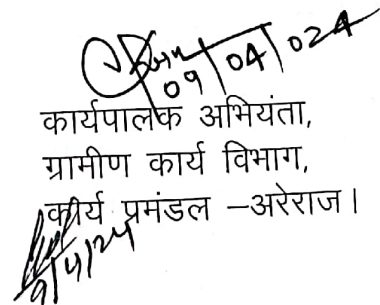 09/04/024
कार्यपालक अभियंता,
ग्रामीण कार्य विभाग,
कार्य प्रमंडल –अरेराज।
9/4/24